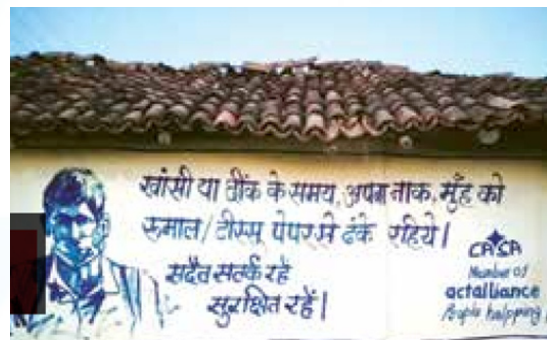 खांसी या छींक के समय, अपना नाक, मुँह को
रुमाल/टीस्सू पेपर से ढंके रहिये।
सदैव सतर्क रहे
सुरक्षित रहें।
CASA
Member of
actalliance
People helpping